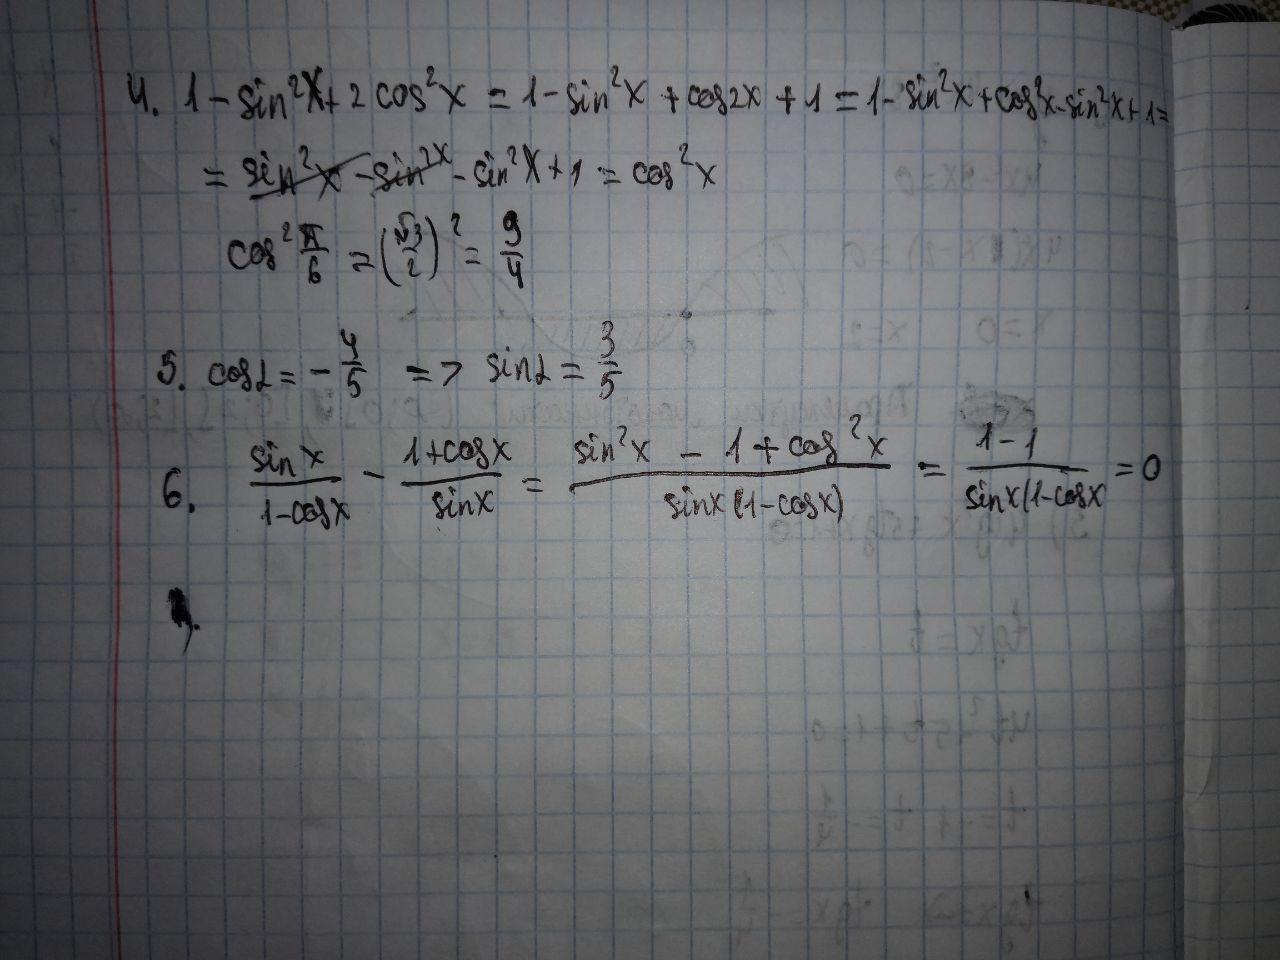 4. 1 - sin²x + 2 cos²x = 1 - sin²x + cos2x + 1 = 1 - sin²x + cos²x - sin²x + 1 =
= sin²x - sin²x - sin²x + 1 = cos²x
cos² π/6 = (√3/2)² = 9/4
5. cosα = - 4/5 => sinα = 3/5
6. sin x/(1-cosx) - (1+cosx)/sinx = (sin²x - 1 + cos²x)/(sinx(1-cosx)) = (1-1)/(sinx(1-cosx) = 0